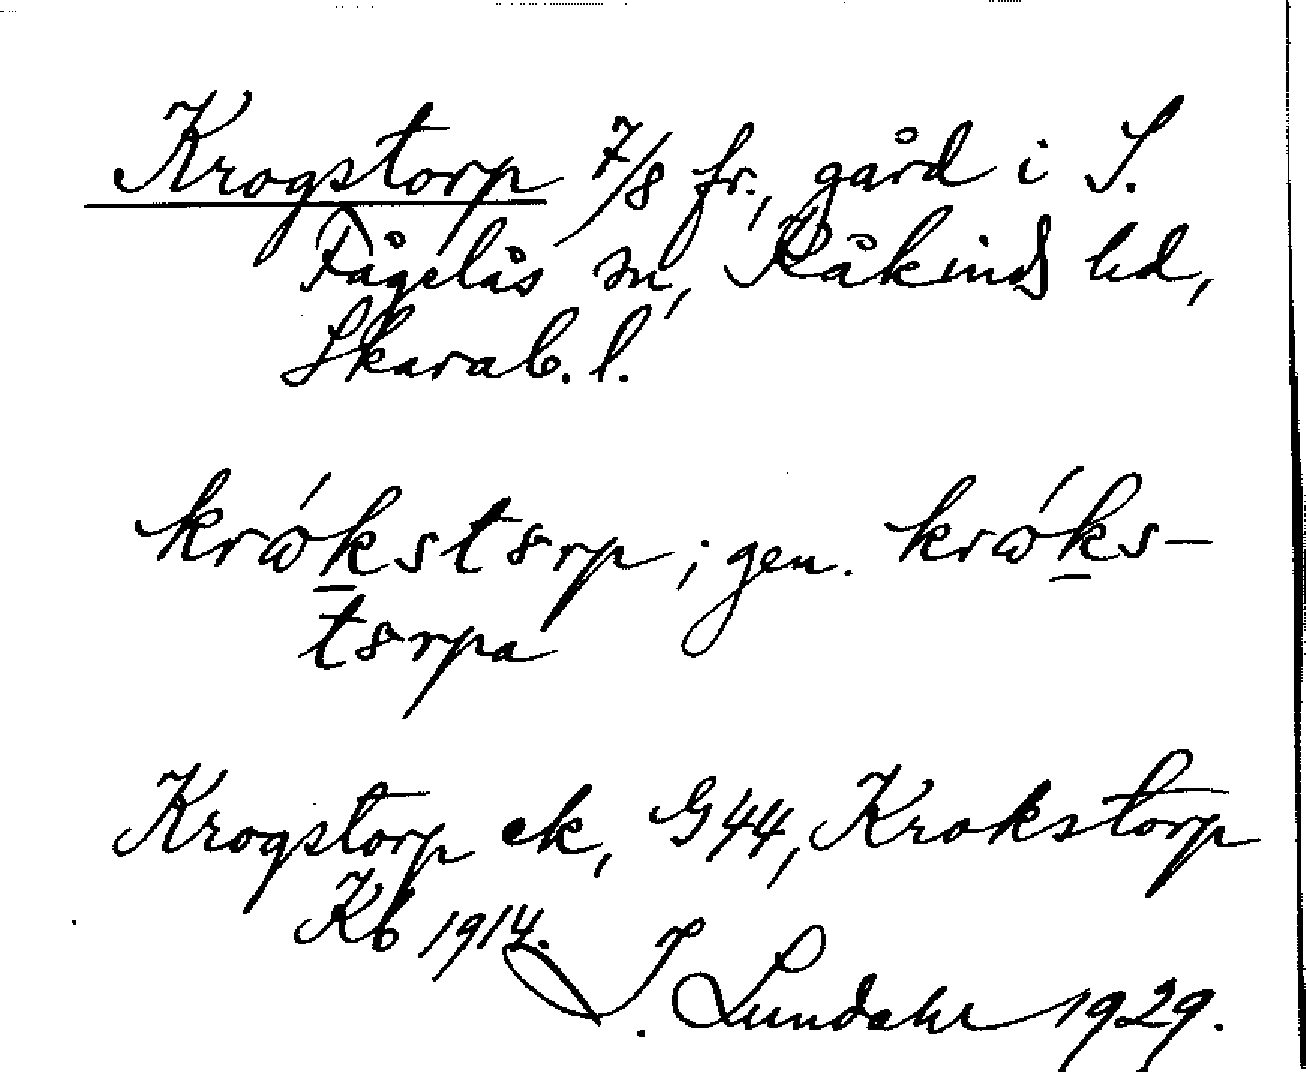 Krogstorp 7/8 fr., gård i S.
Fågelås sn, Kåkinds hd,
Skarab. l.
krώkstȣrp; gen. krώks-
tȣrpa
Krogstorp ek, G44, Krokstorp
Kb 1914.
I. Lundahl 1929.